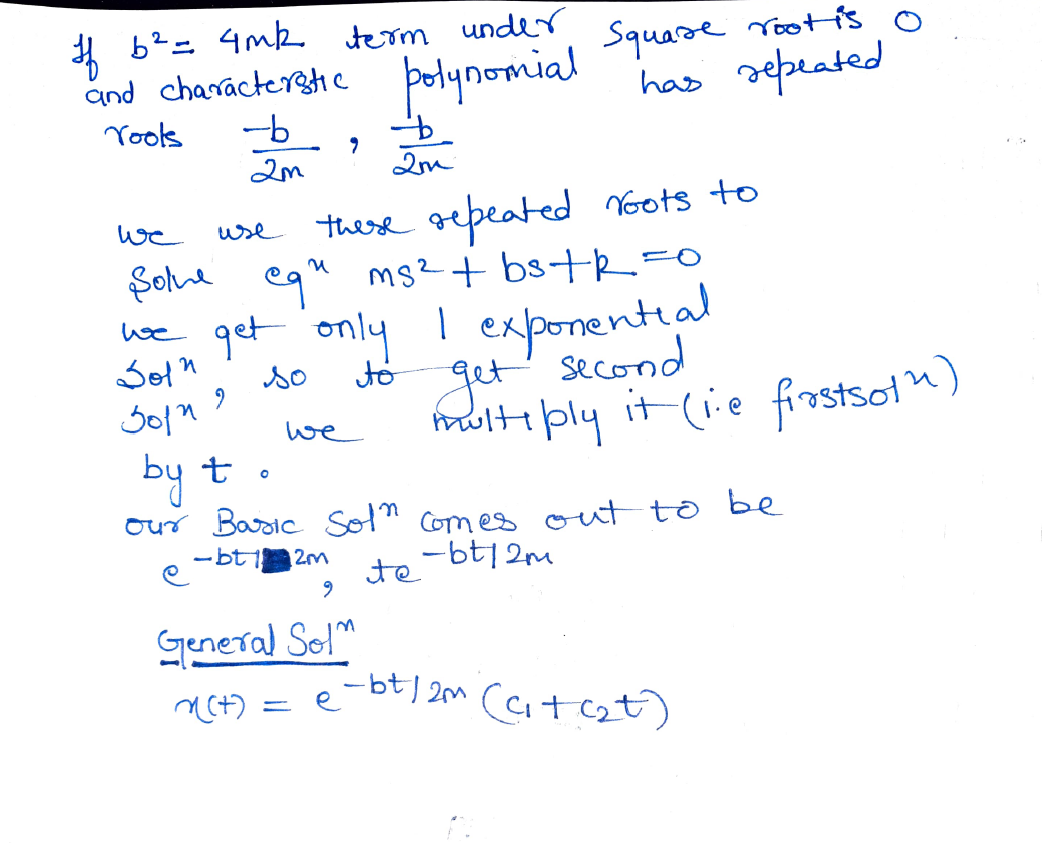 If b² = 4mk term under square root is 0
and characterstic polynomial has repeated
roots -b/2m , -b/2m
we use these repeated roots to
solve eqⁿ ms² + bs + k = 0
we get only 1 exponential
solⁿ, so to get second
solⁿ, we multiply it (i.e first solⁿ)
by t.
our Basic Solⁿ comes out to be
e^-bt/2m , te^-bt/2m
General Solⁿ
x(t) = e^-bt/2m (c₁ + c₂t)